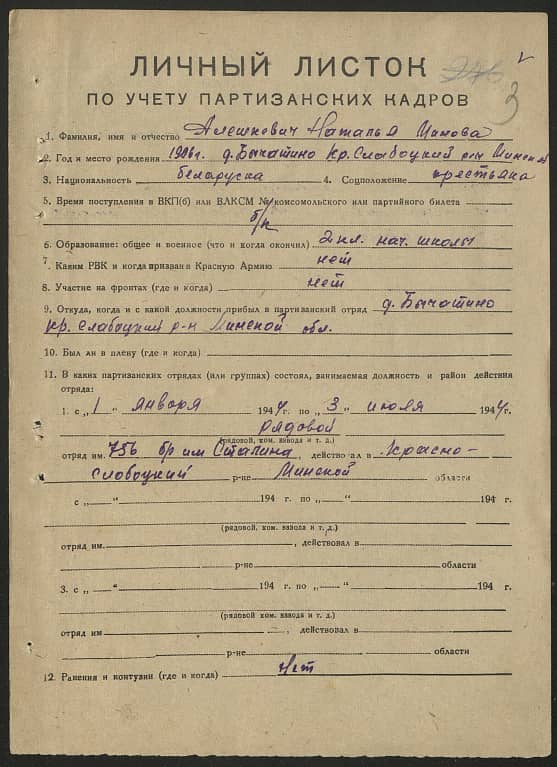 3
ЛИЧНЫЙ ЛИСТОК
ПО УЧЕТУ ПАРТИЗАНСКИХ КАДРОВ
1. Фамилия, имя и отчество Алешкович Наталья
2. Год и место рождения 1906г. д. Бычатино Кр. Слабоцкий р-н Минской
3. Национальность беларуска 4. Соцположение крестьянка
5. Время поступления в ВКП(б) или ВЛКСМ № комсомольского или партийного билета
б/п
6. Образование: общее и военное (что и когда окончил) 2 кл. нач. школы
7. Каким РВК и когда призван в Красную Армию нет
8. Участие на фронтах (где и когда) нет
9. Откуда, когда и с какой должности прибыл в партизанский отряд д. Бычатино
Кр. Слабоцкий р-н Минской обл.
10. Был ли в плену (где и когда)
11. В каких партизанских отрядах (или группах) состоял, занимаемая должность и район действия
отряда:
1. с „1" января 1944 г. по „3" июля 1944 г.
рядовой
(рядовой, ком. взвода и т. д.)
отряд им. 756 бр им Сталина, действовал в Красно-
слабоцкий р-не Минской области
с „ " 194 г. по „ " 194 г.
(рядовой, ком. взвода и т. д.)
отряд им. , действовал в
р-не области
3. с „ " 194 г. по „ " 194 г.
(рядовой, ком. взвода и т. д.)
отряд им , действовал в
р-не области
12. Ранения и контузии (где и когда) Нет